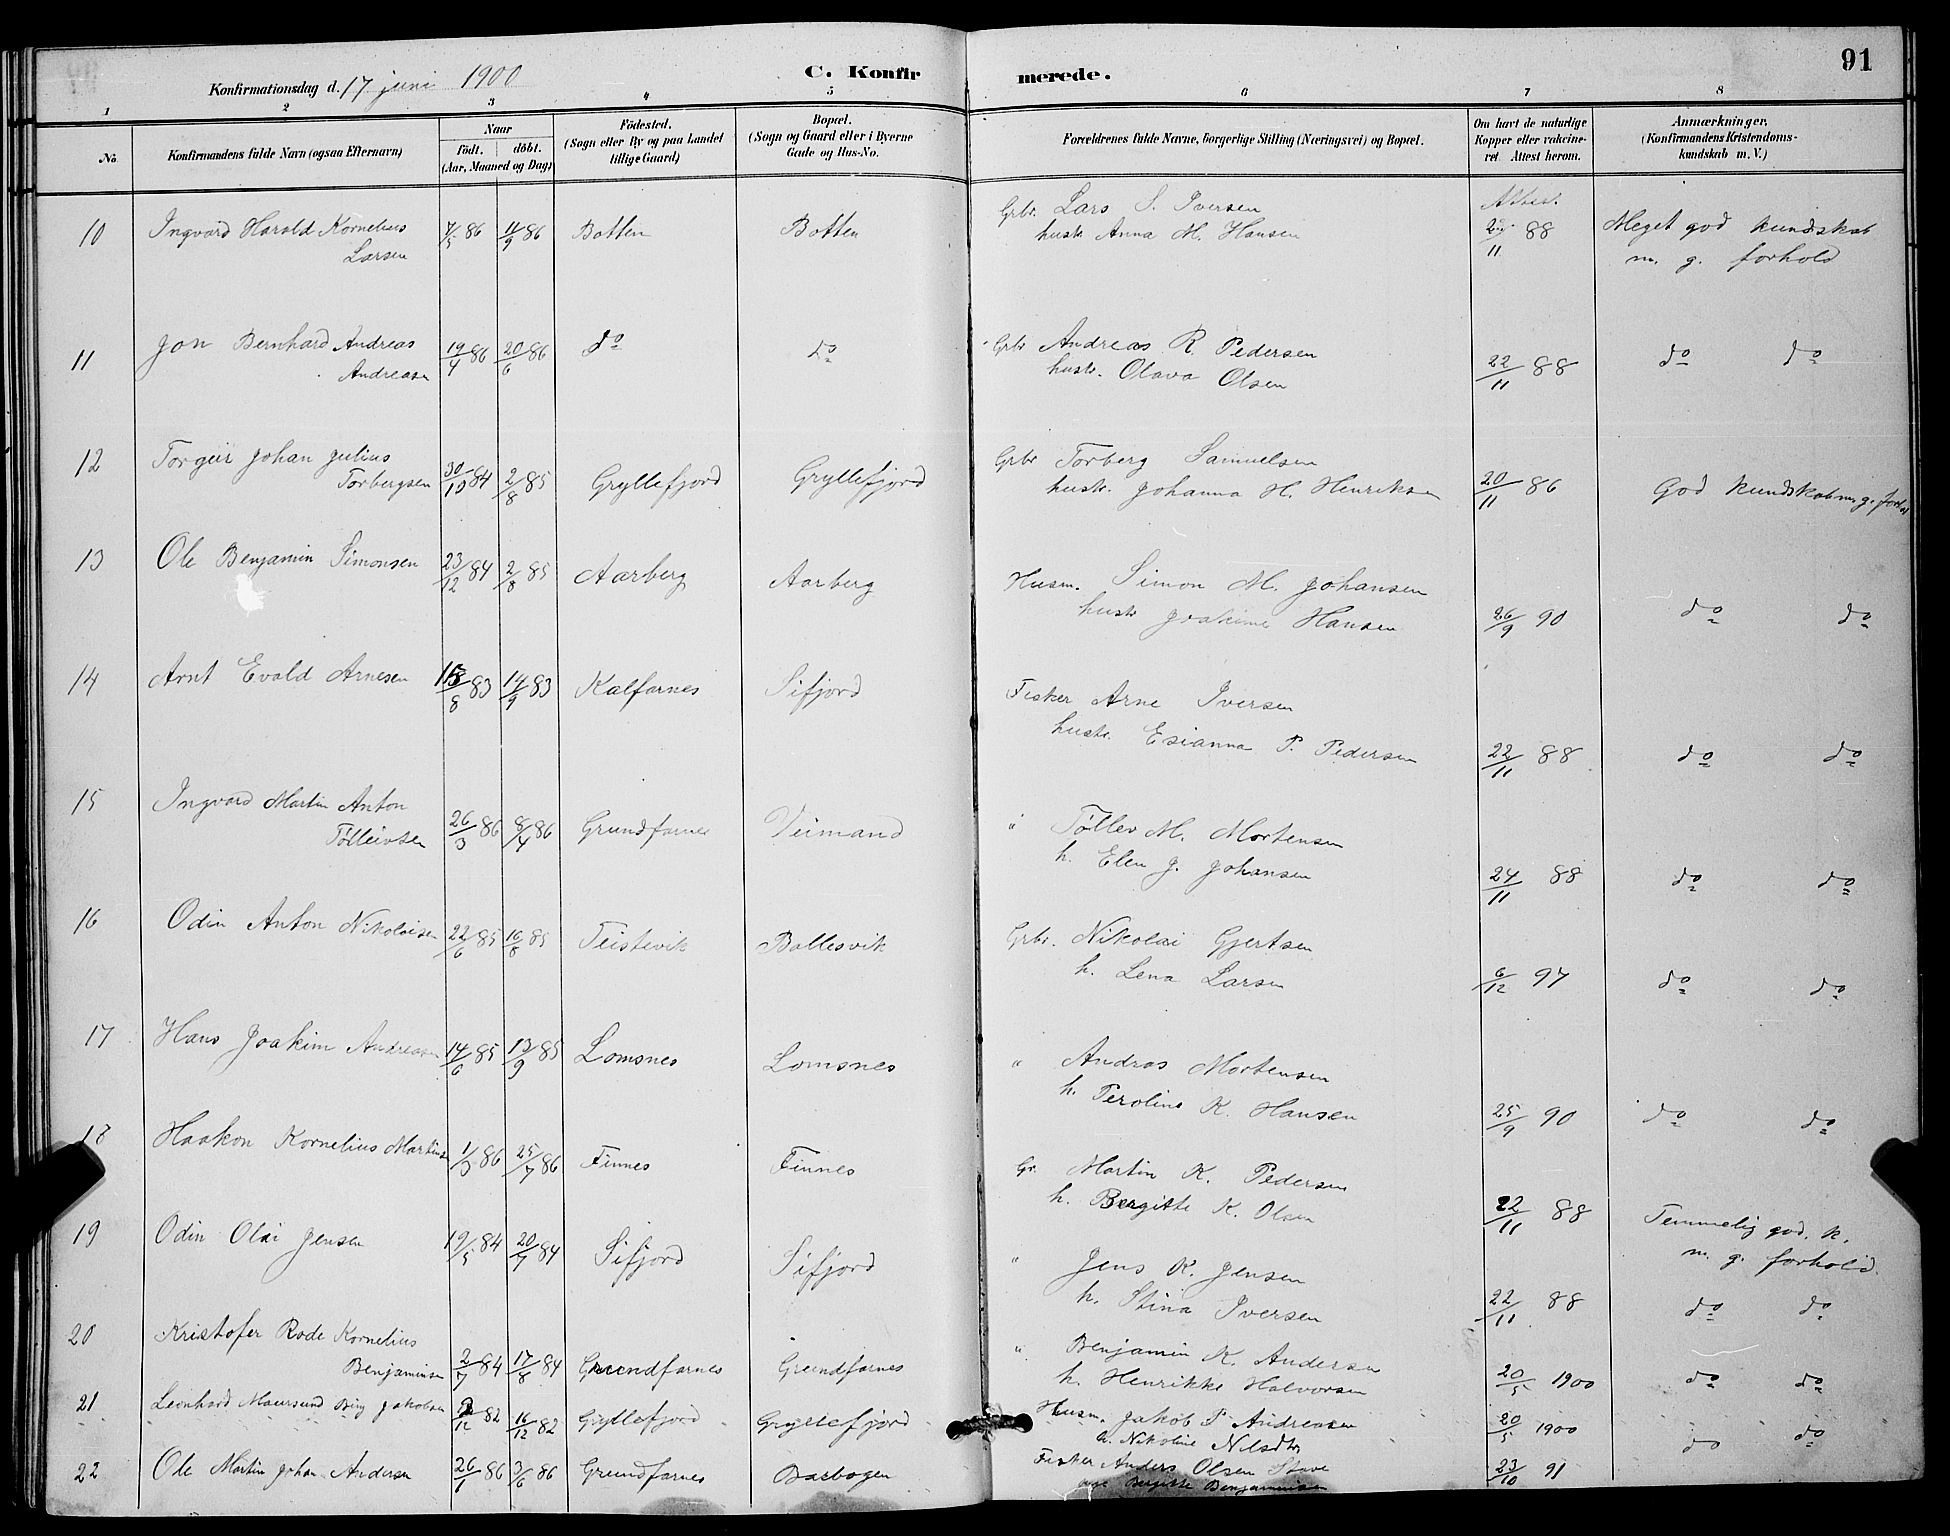 91
Konfirmationsdag d. 17 juni 1900
C. Konfirmerede.
1 2 3 4 5 6 7 8
No.
Konfirmandens fulde Navn (ogsaa Efternavn)
Naar
födt. döbt.
(Aar, Maaned og Dag)
Födested.
(Sogn eller By og paa Landet
tillige Gaard)
Bopæl.
(Sogn og Gaard eller i Byerne
Gade og Hus-No.
Forældrenes fulde Navne, borgerlige Stilling (Næringsvei) og Bopæl.
Om havt de naturlige
Kopper eller vakcine-
ret. Attest herom.
Anmærkninger.
(Konfirmandens Kristendoms-
kundskab m. V.)
10 Ingvard Harald Kornelius 7/5 86 11/9 86 Botten Botten Grbr. Lars S. Iversen Attest. Meget god kundskab
Larsen hustr. Anna M. Hansen /11 88 m. g. forhold
11 Jon Bernhard Andreas 19/4 86 20/6 86 do do Grbr Andreas R. Pedersen do do
Andreasen hustr. Olava Olsen 22/11 88
12 Torgeir Johan Julius Grbr Torberg Samuelsen
Torbergsen 30/10 84 2/8 85 Gryllefjord Gryllefjord hustr. Johanna H. Henriksen 20/11 86 God kundskab m. g. forhol
13 Ole Benjamin Simonsen 23/12 84 2/8 85 Aarberg Aarberg Husm. Simon M. Johansen
hustr Joakime Hansen 26/9 90 do do
14 Arnt Evald Arnesen /8 83 14/9 83 Kalfarnes Sifjord Fisker Arne Iversen
hustr. Esianna P. Pedersen 22/11 88 do do
15 Ingvard Martin Anton " Tölley M. Mortensen
Tölleivsen 26/3 86 8/4 86 Grundfarnes Veimand h. Elen J. Johansen 24/11 88 do do
16 Odin Anton Nikolaisen 22/6 85 16/8 85 Teistevik Ballesvik Grbr. Nikolai Gjertsen
h. Lena Larsen 6/12 97 do do
17 Hans Joakim Andreasen 14/6 85 13/9 85 Lomsnes Lomsnes " Andras Mortensen
h. Peroline K. Hansen 25/9 90 do do
18 Haakon Kornelius Martins 1/3 86 25/7 86 Finnes Finnes Gr. Martin K. Pedersen
h. Bergitte K. Olsen 22/11 88 Temmelig god. k.
m. g. forhold.
19 Odin Olai Jensen 19/5 84 20/7 84 Sifjord Sifjord " Jens K. Jensen
h. Stina Iversen 22/11 88 do do
20 Kristofer Rode Kornelius " Benjamin K. Andersen
Benjaminsen 2/7 84 17/8 84 Grundfarnes Grundfarnes h. Henrikke Halvorsen 20/5 1900 do do
21 Leonhard Maursund Jakobsen /12 82 16/12 82 Gryllefjord Gryllefjord Husm. Jakob P Andreasen 20/5 1900 do do
h. Nikoline Nilsdtr
22 Ole Martin Johan Andersen 26/1 86 3/6 86 Grundfarnes Barbogen Fisker Anders Olsen Stave 23/10 91
Bergitte Benjaminsen